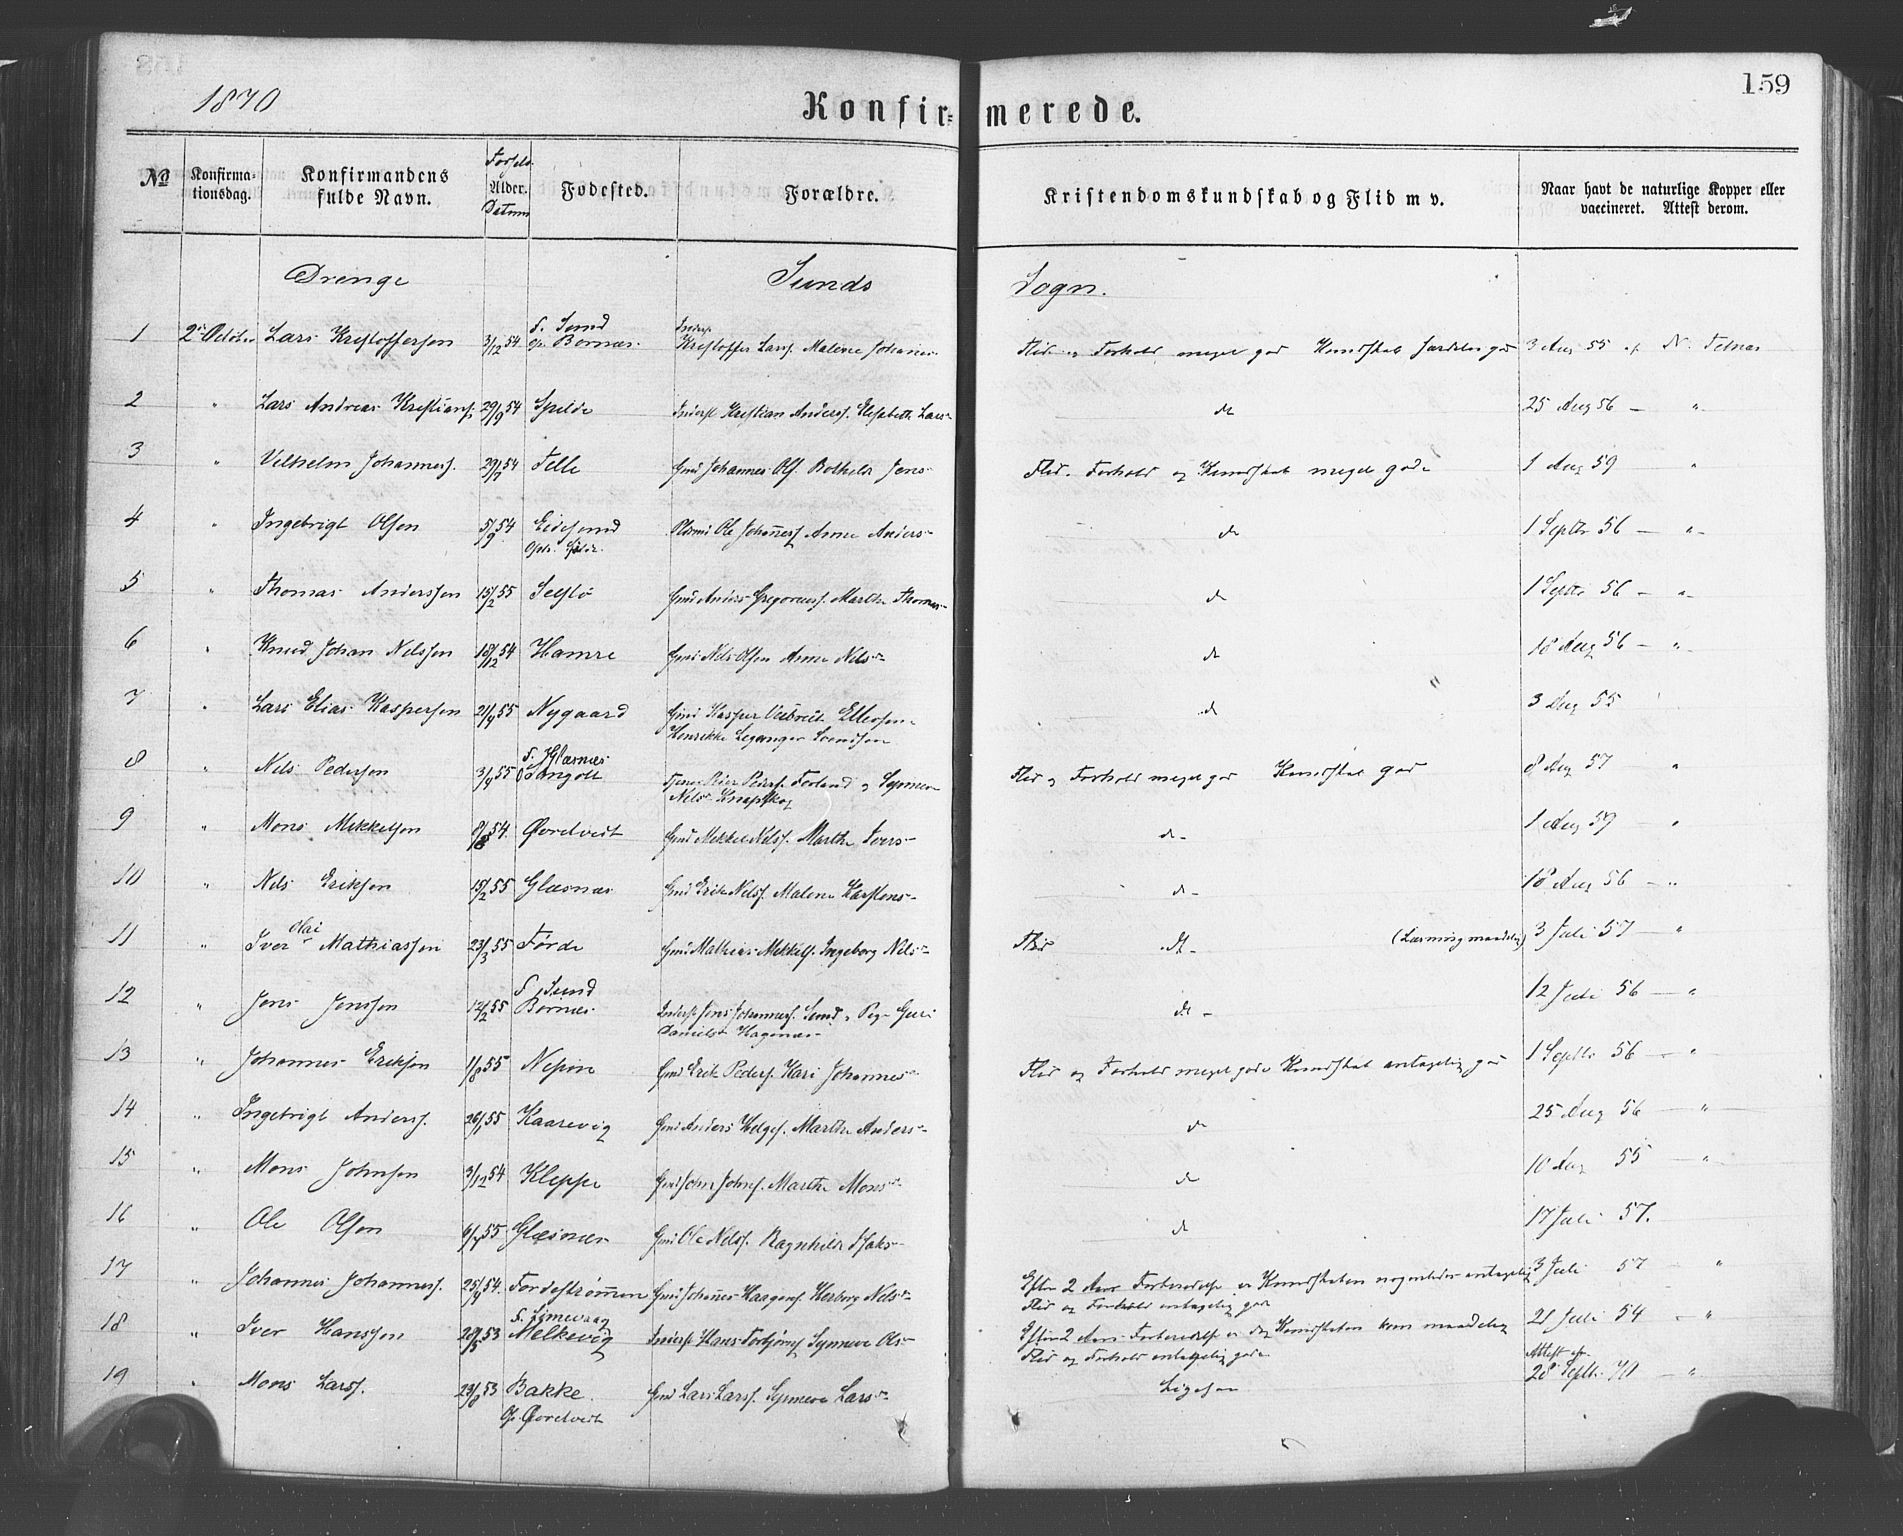 159
1870
Konfirmerede.
No
Konfirmationsdag.
Konfirmandens fulde Navn.
Alder. Datum
Fødested.
Forældre.
Kristendomskundskab og Flid m v.
Naar havt de naturlige Kopper eller vaccineret. Attest derom.
Drenge Sunds Sogn.
1 2. Lars Kristoffersen 3/12 54 F. Sund Op. Børnæs Inders. Kristoffer Larss. Malene Johannes- Flid og Forhold meget god Kundskab særdeles god 3 Aug 55 af N. Tednæs
2 " Lars Andreas Kristians. 29/9 54 Spilde Inders. Kristian Anderss. Elisabeth Lars- dt 25 Aug 56 — "
3 " Vilhelm Johanness. 29/7 54 Felle Gmd Johannes Ols. Bothilda Jens- Flid, Forhold og Kundskab meget gode 1 Aug 59 "
4 " Ingebrigt Olsen 5/9 54 Eidesund Ole Johanness Anne Anders- do 1 Septbr 56 — "
5 " Thomas Anderssen 15/2 55 Selstø Gmd Anders Gregoriuss. Marthe Thomas- do 1 Septbr 56 — "
6 " Knud Johan Nelssen 18/12 54 Hamre Gmd Nels Olsen Anna Nels- do 18 Aug 56 — "
7 " Lars Elias Kaspersen 21/4 55 Nygaard Gmd Kasper Ellessen Henrikke Leganger Svendsen do 3 Aug 55
8 " Nels Pedersen 3/4 55 F. Glæsnæs Peder Peders. Forland og Synneve Nels- Knapskog Flid og Forhold meget god Kundskab god 8 Aug 57 "
9 " Mons Mikkelsen 8/8 54. Øvretvedt Gmd Mikkel Nelss. Marthe Ivers- do 1 Aug 59 "
10 " Nels Eriksen 15/2 55 Glæsnæs Gmd Erik Nelss. Malene Karstens- do 18 Aug 56 — "
11 " Iver Olai Mathiassen 23/3 55 Førde Gmd Mathias Mikkels. Ingeborg Nels- Flid dt 3 Juli 57 — "
12 " Jens Jenssen 12/2 55 F. Sund Børnæs Inders. Jens Johanness. Sund og Pige Guri Daniels. Hagenæs dt 12 Juli 56 — "
13 " Johannes Eriksen 1/8 55 Nepøne Gmd Erik Peders. Kari Johannes- Flid og Forhold meget gode Kundskab antagelig god 1 Septbr 56 — "
14 " Ingebrigt Anderss. 26/1 55 Kaarevig Gmd Anders Helges. Marthe Anders- do 25 Aug 56 — "
15 " Mons Johnsen 3/12 54 Kleppe Gmd John Johns. Marthe Mons- do 10 Aug 55 — "
16 " Ole Olsen 6/4 55 Glæsnæs Gmd Ole Nelss. Ragnhilde Isaks- do 17 Juli 57.
17 " Johannes Johanness. 25/9 54. Førdestrømmen Gmd Johannes Haagens. Herborg Nels- Efter 2 Aars Forberedelse er Kundskaben nogenledes antagelig Flid og Forhold antagelig god 3 Juli 57 "
18 " Iver Hanssen 28/5 53 F. Limevaag Melkevig Inders. Hans Torbjørns Synneve Ols- Efter 2 Aars Forberedelse er dog Kundskaben kun maadelig Flid og Forhold antagelig gode 21 Juli 54 "
19 " Mons Larss. 23/8 53 Bakke Op. Øvretvedt Gmd Lars Larss. Synneve Lars- Ligesaa Attest af 28 Septbr 70 — "